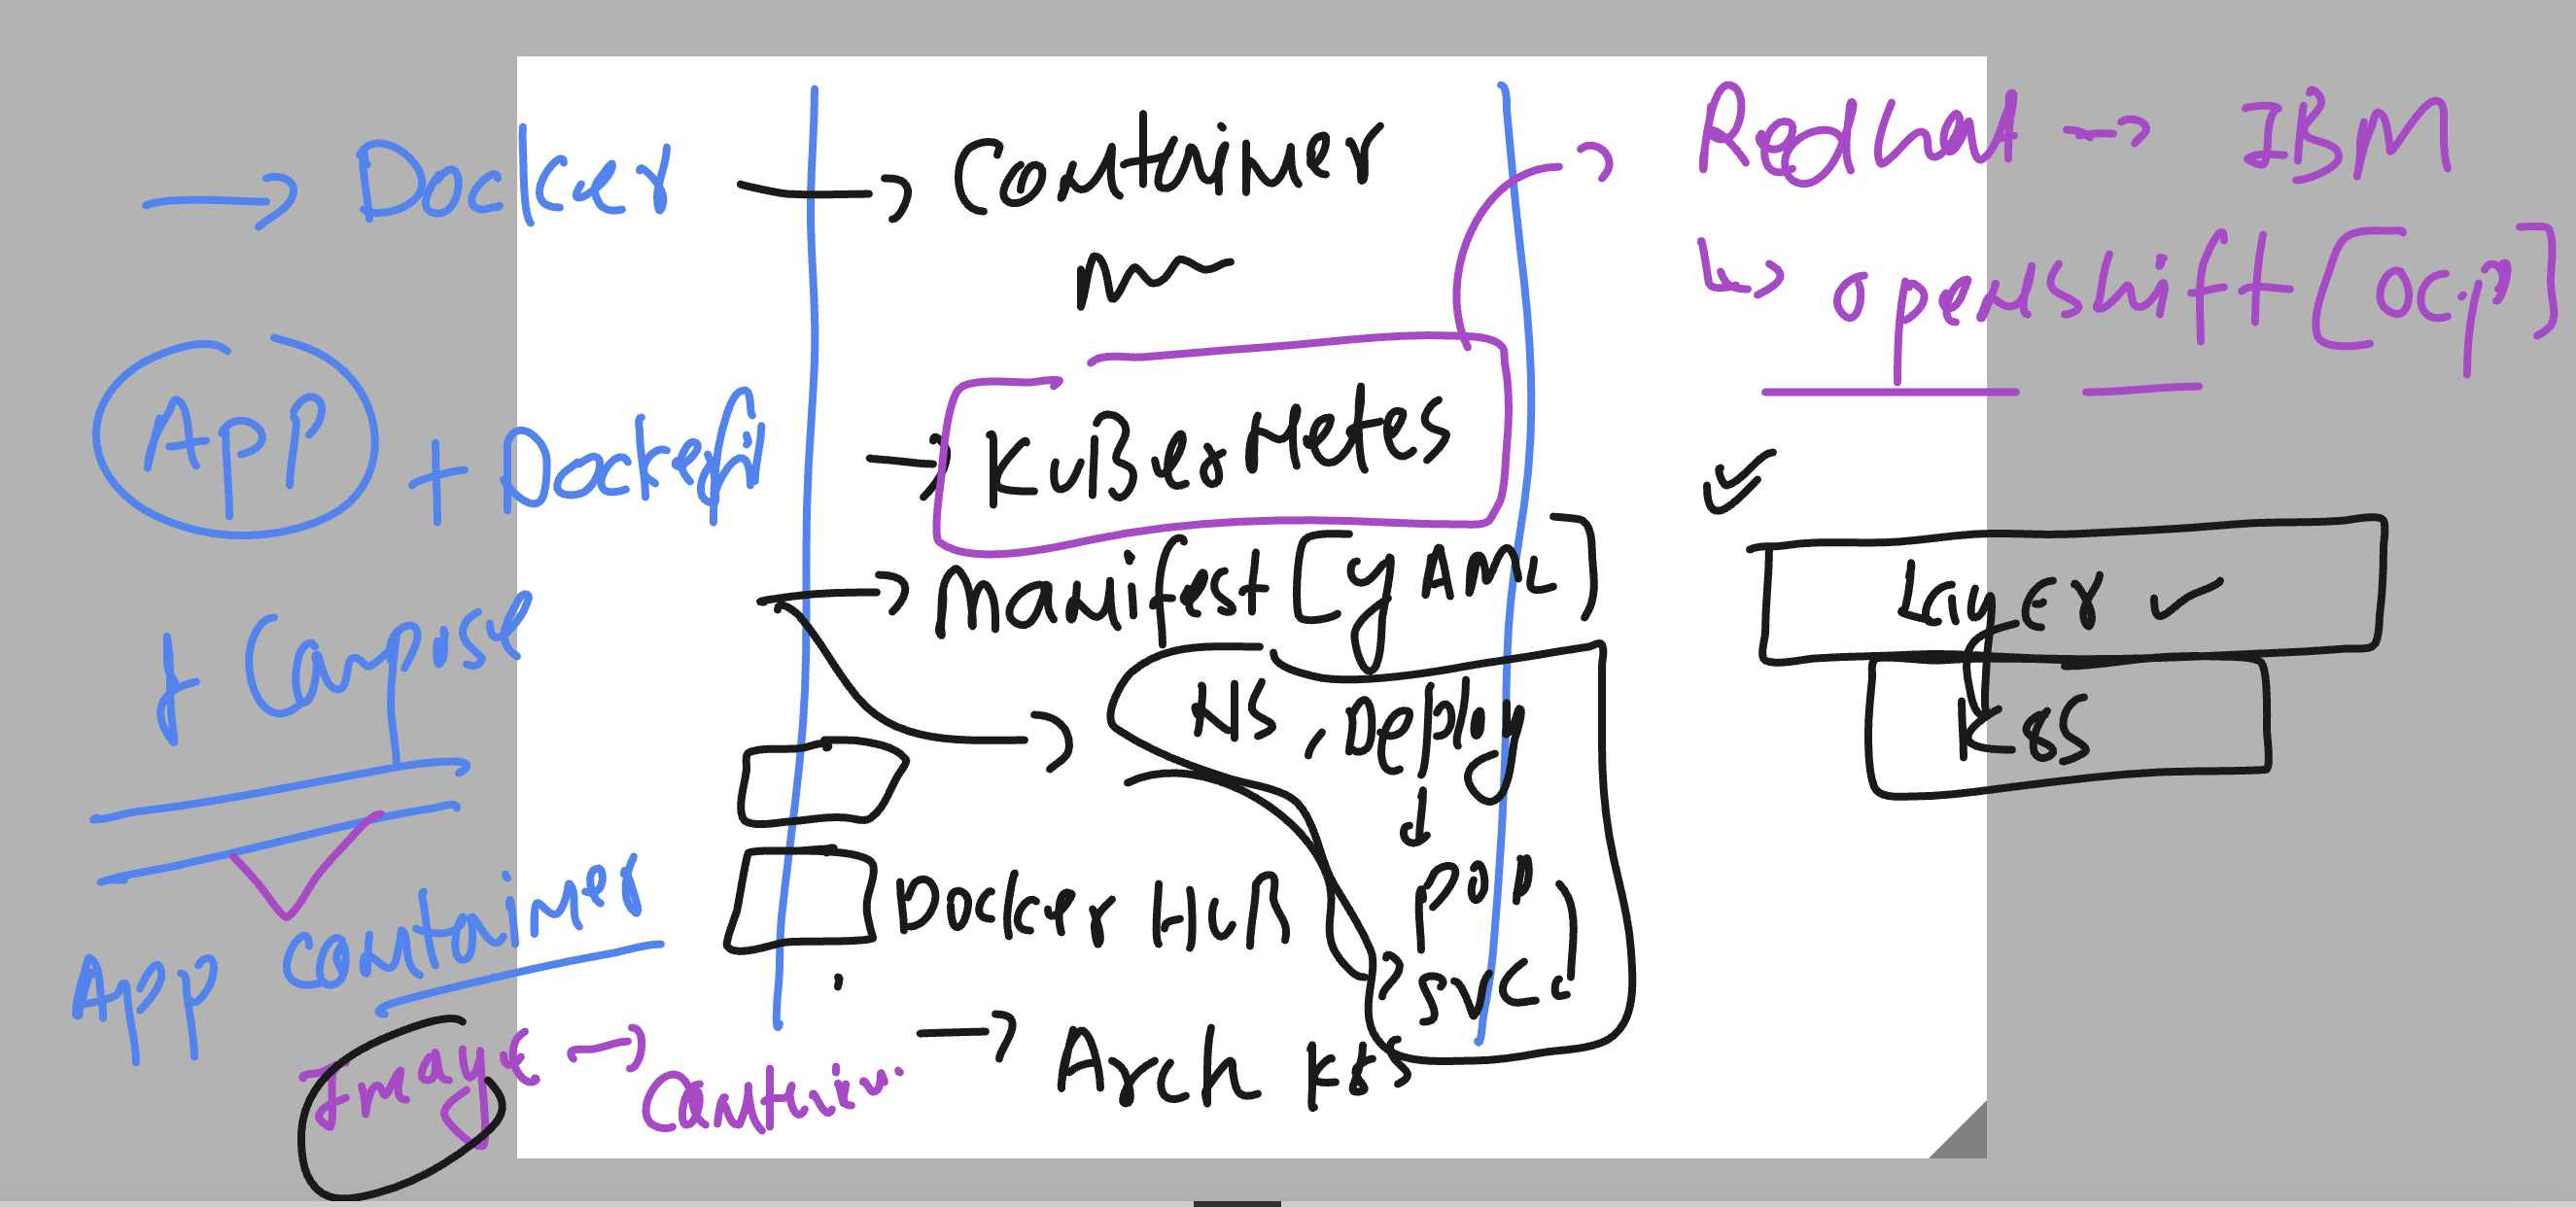 → Docker → Container
App + Dockerfi
+ Compose
App container
Image → Contain..
→ KuBerNetes
→ Manifest [YAML]
NS, Deploy
↓
POD
SVC
Docker HuB
→ Arch K8S
→ Redhat → IBM
↳ openshift [OCP]
Layer ✓
K8S